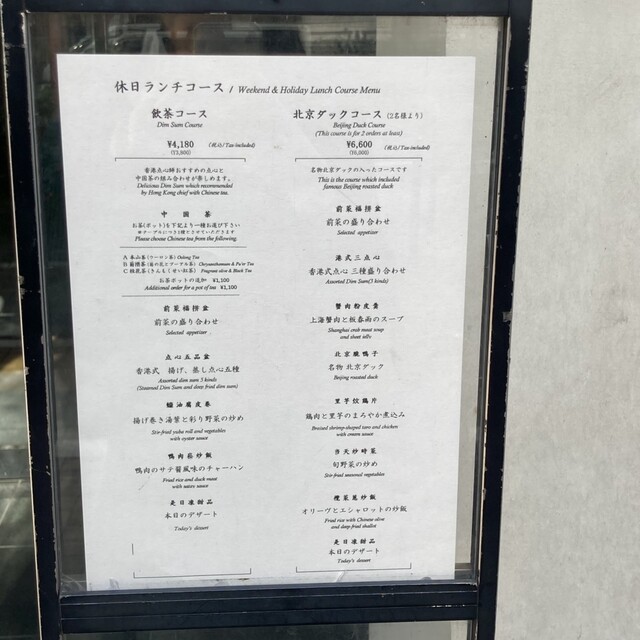 休日ランチコース / Weekend & Holiday Lunch Course Menu
飲茶コース
Dim Sum Course
¥4,180 (税込/Tax-included)
(¥3,800)
香港点心師おすすめの点心と
中国茶の組み合わせが楽しめます。
Delicious Dim Sum which recommended
by Hong Kong chief with Chinese tea.
中国茶
お茶(ポット)を下記より一種お選び下さい
※テーブルにつき1種とさせていただきます
Please choose Chinese tea from the following.
(ウーロン茶) Oolong Tea
Chrysanthemum & Pu'er Tea
Fragrant olive & Black Tea
お茶ポットの追加 ¥1,100
Additional order for a pot of tea ¥1,100
前菜福拼盆
前菜の盛り合わせ
Selected appetizer
点心五品盆
香港式 揚げ、蒸し点心五種
Assorted dim sum 5 kinds
(Steamed Dim Sum and deep fried dim sum)
蠔油腐皮巻
揚げ巻き湯葉と彩り野菜の炒め
Stir-fried yuba roll and vegetables
with oyster sauce
鴨肉崧炒飯
鴨肉のサテ醤風味のチャーハン
Fried rice and duck meat
with satay sauce
是日凍甜品
本日のデザート
Today's dessert
北京ダックコース (2名様より)
Beijing Duck Course
(This course is for 2 orders at least)
¥6,600 (税込/Tax-included)
(¥6,000)
名物北京ダックの入ったコースです
This is the course which included
famous Beijing roasted duck
前菜福拼盆
前菜の盛り合わせ
Selected appetizer
港式三点心
香港式点心 三種盛り合わせ
Assorted Dim Sum(3 kinds)
蟹肉粉皮羹
上海蟹肉と板春雨のスープ
Shanghai crab meat soup
and sheet jelly
北京烤鴨子
名物 北京ダック
Beijing roasted duck
里芋炆鶏片
鶏肉と里芋のまろやか煮込み
Braised shrimp-shaped taro and chicken
with cream sauce
当天炒時菜
旬野菜の炒め
Stir-fried seasonal vegetables
欖菜葱炒飯
オリーヴとエシャロットの炒飯
Fried rice with Chinese olive
and deep fried shallot
是日凍甜品
本日のデザート
Today's dessert